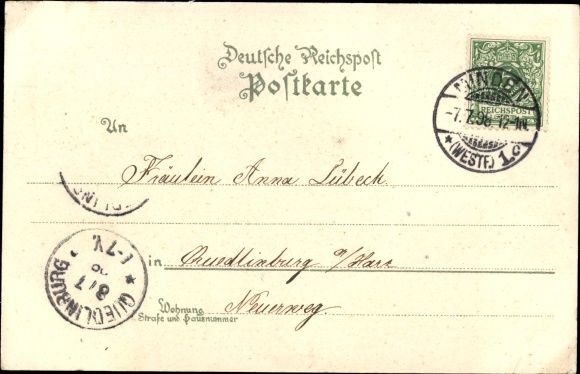 Deutsche Reichspost
Postkarte
MINDEN
-7.7.98 12-1N.
*(WESTF.) 1.c
REICHSPOST
An
Fräulein Anna Lübeck
in Quedlinburg a/Harz
Wohnung
Straße und Hausnummer
Neuerweg.
QUEDLINBURG
8/7
1-7V.